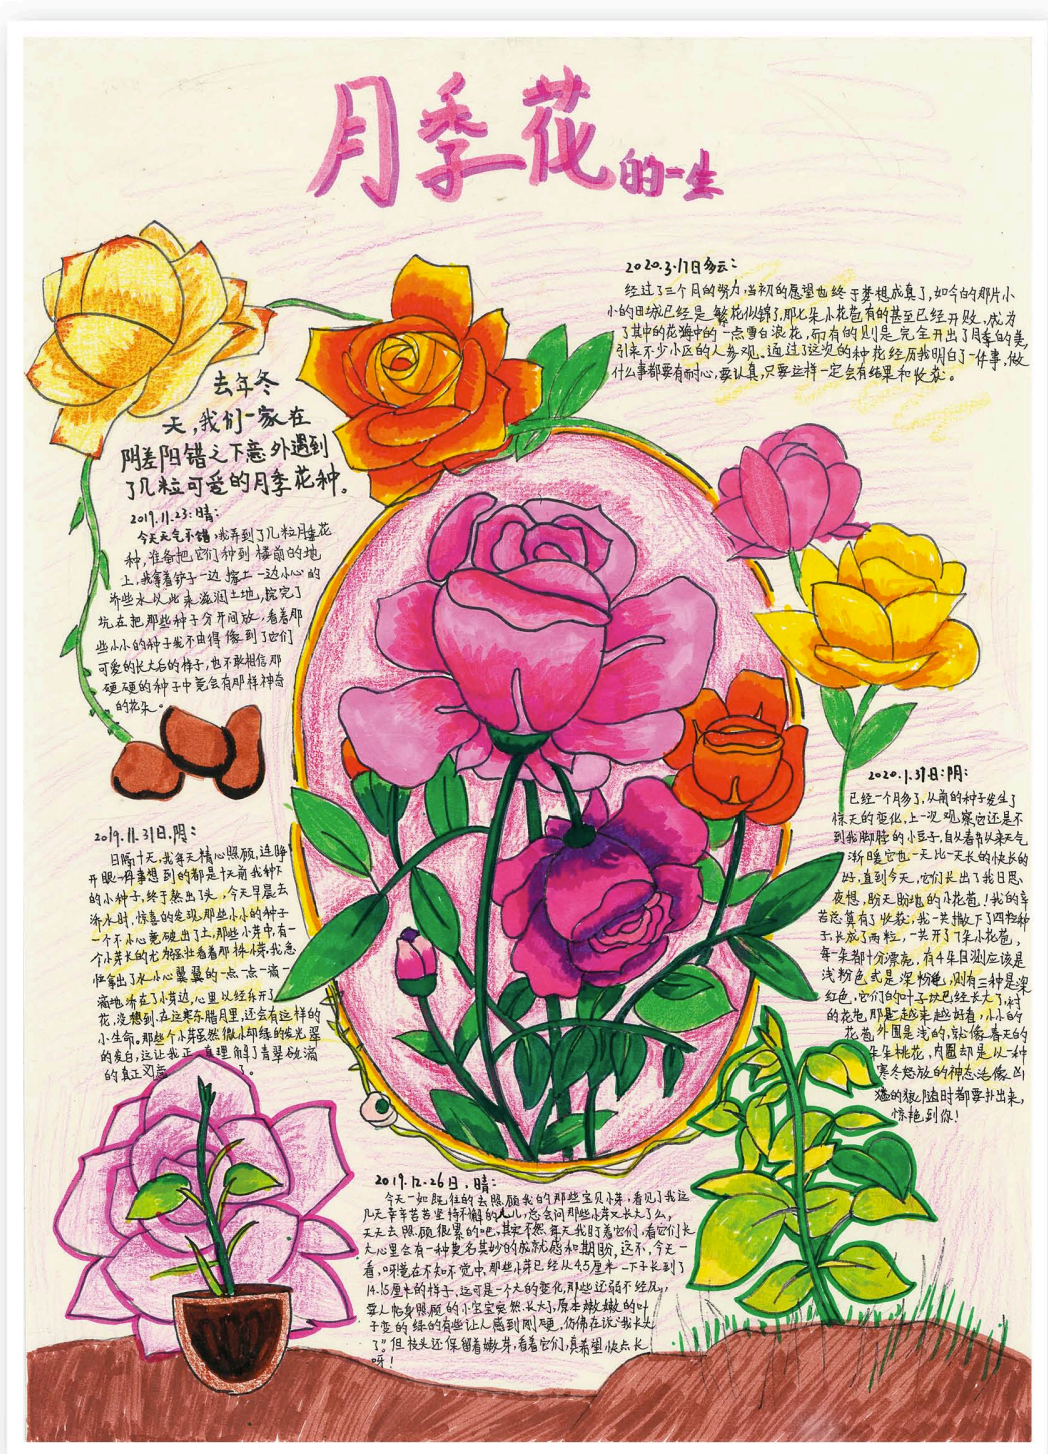 月季花的一生
去年冬
天,我们一家在
阴差阳错之下意外遇到
了几粒可爱的月季花种。
2019.11.23:晴:
今天天气不错,我弄到了几粒月季花
种,准备把它们种到楼前的地
上,我拿着铲子一边挖土一边小心的
浇些水以此来滋润土地,挖完了
坑在把那些种子分开间放,看着那
些小小的种子我不由得像到了它们
可爱的长大后的样子,也不敢相信那
硬硬的种子中竟会有那样神奇
的花朵。
2019.11.31日.阴:
日隔十天,我每天精心照顾,连睁
开眼一件事想到的都是十天前我种下
的小种子,终于熬出了头,今天早晨去
浇水时,惊喜的发现那些小小的种子
一个不小心竟破出了土,那些小芽中,有一
个小芽长的尤为强壮看着那株小芽,我急
忙拿出了水小心翼翼的一点一点一滴一
滴地浇在了小芽边,心里以经乐开了
花,没想到,在这寒东腊月里,还会有这样的
小生命。那些个小芽虽然微小却绿的发光翠
的发白,这让我正真理解了青翠欲滴
的真正义意。
2019.12.26日,晴:
今天一如既往的去照顾我的那些宝贝小芽,看见了我这
几天辛辛苦苦坚持不懈的人儿,总会问那些小芽又长大了么,
天天去照顾很累的吧,其实不然,每天我盯着它们,看它们长
大心里会有一种莫名其妙的成就感和期盼,这不,今天一
看,呀竟在不知不觉中,那些小芽已经从4.5厘米一下子长到了
14.15厘米的样子,这可是一个大的变化,那些还弱不经风,
要人贴身照顾的小宝宝突然长大了,原本嫩嫩的叶
子变的绿的有些让人感到刚硬,仿佛在说“我长大
了”但枝头还保留着嫩芽,看着它们,真希望快点长
呀!
2020.1.31日:阴:
已经一个月多了,从前的种子发生了
惊天的变化,上一次观察它还是不
到我脚脖的小豆子,自从春节以来天气
渐暖它也一天比一天长的快长的
好,直到今天,它们长出了我日思
夜想,盼天盼地的小花苞!我的辛
苦总算有了收获,我一共撒下了四粒种
子,长成了两粒,一共开了7朵小花苞,
每一朵都十分漂亮,有4朵目测应该是
浅粉色式是深粉色,则有三种是深
红色,它们的叶子以已经长大了,衬
的花苞,那是越来越好看,小小的
花苞外围是浅的,就像春天的
朵朵桃花,内圈却是从一种
寒冬怒放的神态活像凶
猛的狼,随时都要扑出来,
惊艳到你!
2020.3.17日多云:
经过了三个月的努力,当初的愿望也终于梦想成真了,如今的那片小
小的田城已经是繁花似锦了,那七朵小花苞有的甚至已经开败,成为
了其中的花海中的一点雪白浪花,而有的则是完全开出了月季的美,
引来不少小区的人参观。通过了这次的种花经历我明白了一件事,做
什么事都要有耐心,要认真,只要这样一定会有结果和收获。